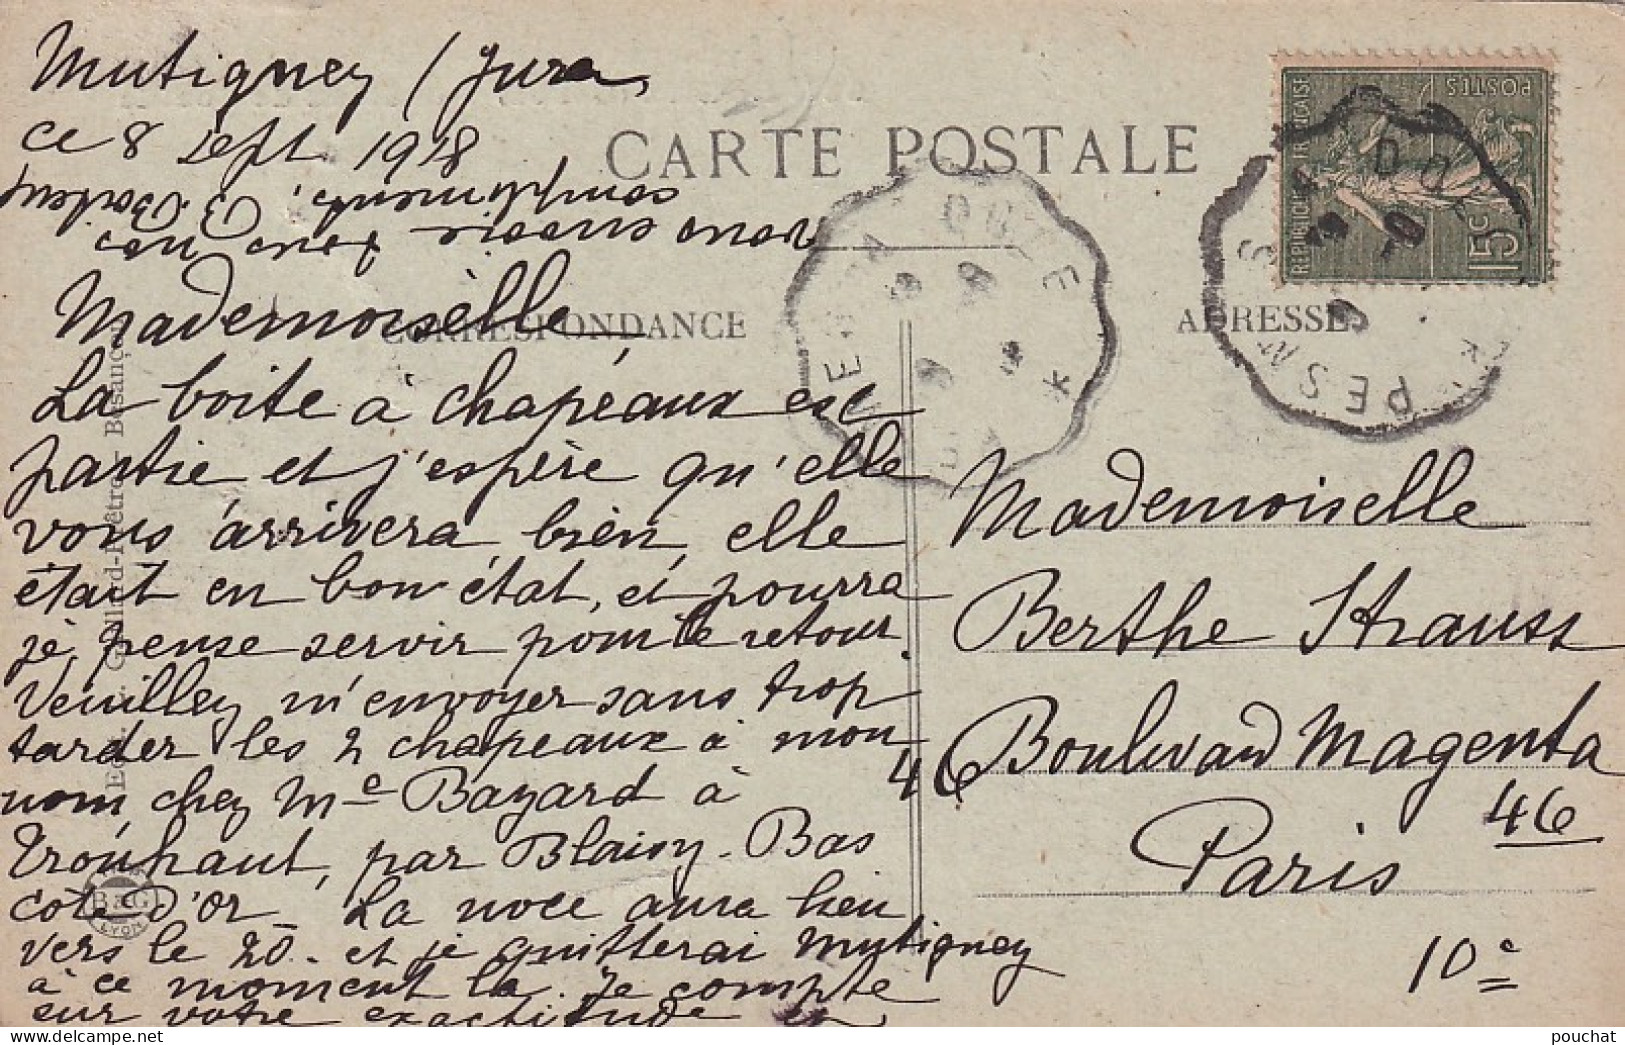 Mutigney / Jura
ce 8 Sept 1918
CARTE POSTALE
CORRESPONDANCE
ADRESSE
REPUBLIQUE FRANÇAISE
POSTES
15c
Mademoiselle
La boite à chapeaux est
partie et j'espère qu'elle
vous arrivera bien, elle
était en bon état, et pourra
je pense servir pour le retour.
Veuillez m'envoyer sans trop
tarder les 2 chapeaux à mon
nom, chez Me Bazard à
Trouhaut, par Blaisy-Bas
cote d'or. La noce aura lieu
vers le 20 - et je quitterai Mutigney
à ce moment la. Je compte
sur votre exactitude et
vous envoie
mes
compliments. B.
Mademoiselle
Berthe Strauss
46 Boulevard Magenta
46
Paris
10e
Besançon
B & G
LYON
PESMES A DOLE
pouchat